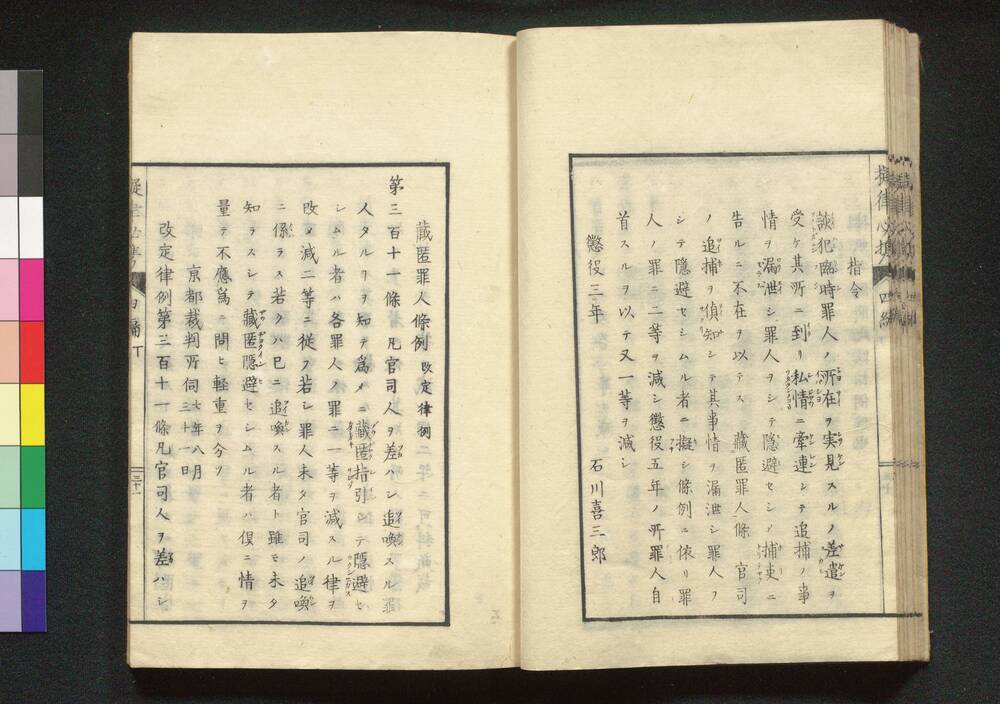 指令
該犯臨時罪人ノ所在ヲ実見スルノ差遣ヲ
受ケ其所ニ到リ私情ニ牽連シテ追捕ノ事
情ヲ漏泄シ罪人ヲシテ隠避セシメ捕吏ニ
告ルニ不在ヲ以テス 藏匿罪人條 官司
ノ追捕ヲ偵知シテ其事情ヲ漏泄シ罪人ヲ
シテ隠避セシムル者ニ擬シ條例ニ依リ罪
人ノ罪ニ二等ヲ減シ懲役五年ノ所罪人自
首スルヲ以テ又一等ヲ減シ
懲役三年 石川喜三郎
藏匿罪人條例 改定律例
第三百十一條凡官司人ヲ差ハシ追喚スル罪
人タルヿヲ知テ為メニ藏匿指引シテ隠避セ
シムル者ハ各罪人ノ罪ニ一等ヲ減スル律ヲ
改メ減二等ニ従フ若シ罪人未タ官司ノ追喚
ニ係ラス若クハ已ニ追喚スル者ト雖モ未タ
知ラスシテ藏匿隠避セシムル者ハ倶ニ情ヲ
量テ不應為ニ問ヒ軽重ヲ分ツ
京都裁判所伺 七年八月三十一日
改定律例第三百十一條凡官司人ヲ差ハシ